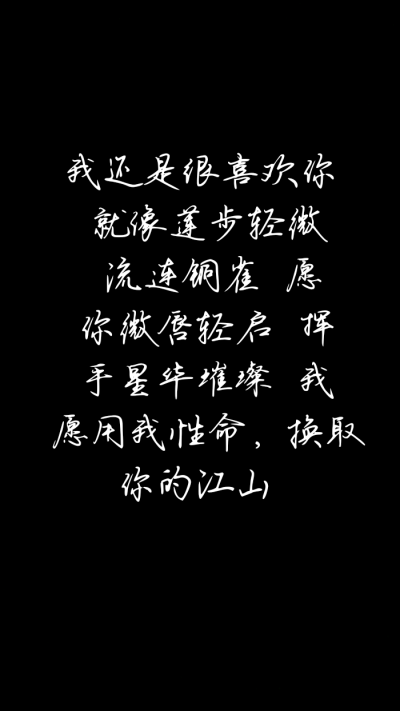 我还是很喜欢你
就像莲步轻微
流连铜雀 愿
你微唇轻启 挥
手星华璀璨 我
愿用我性命，换取
你的江山